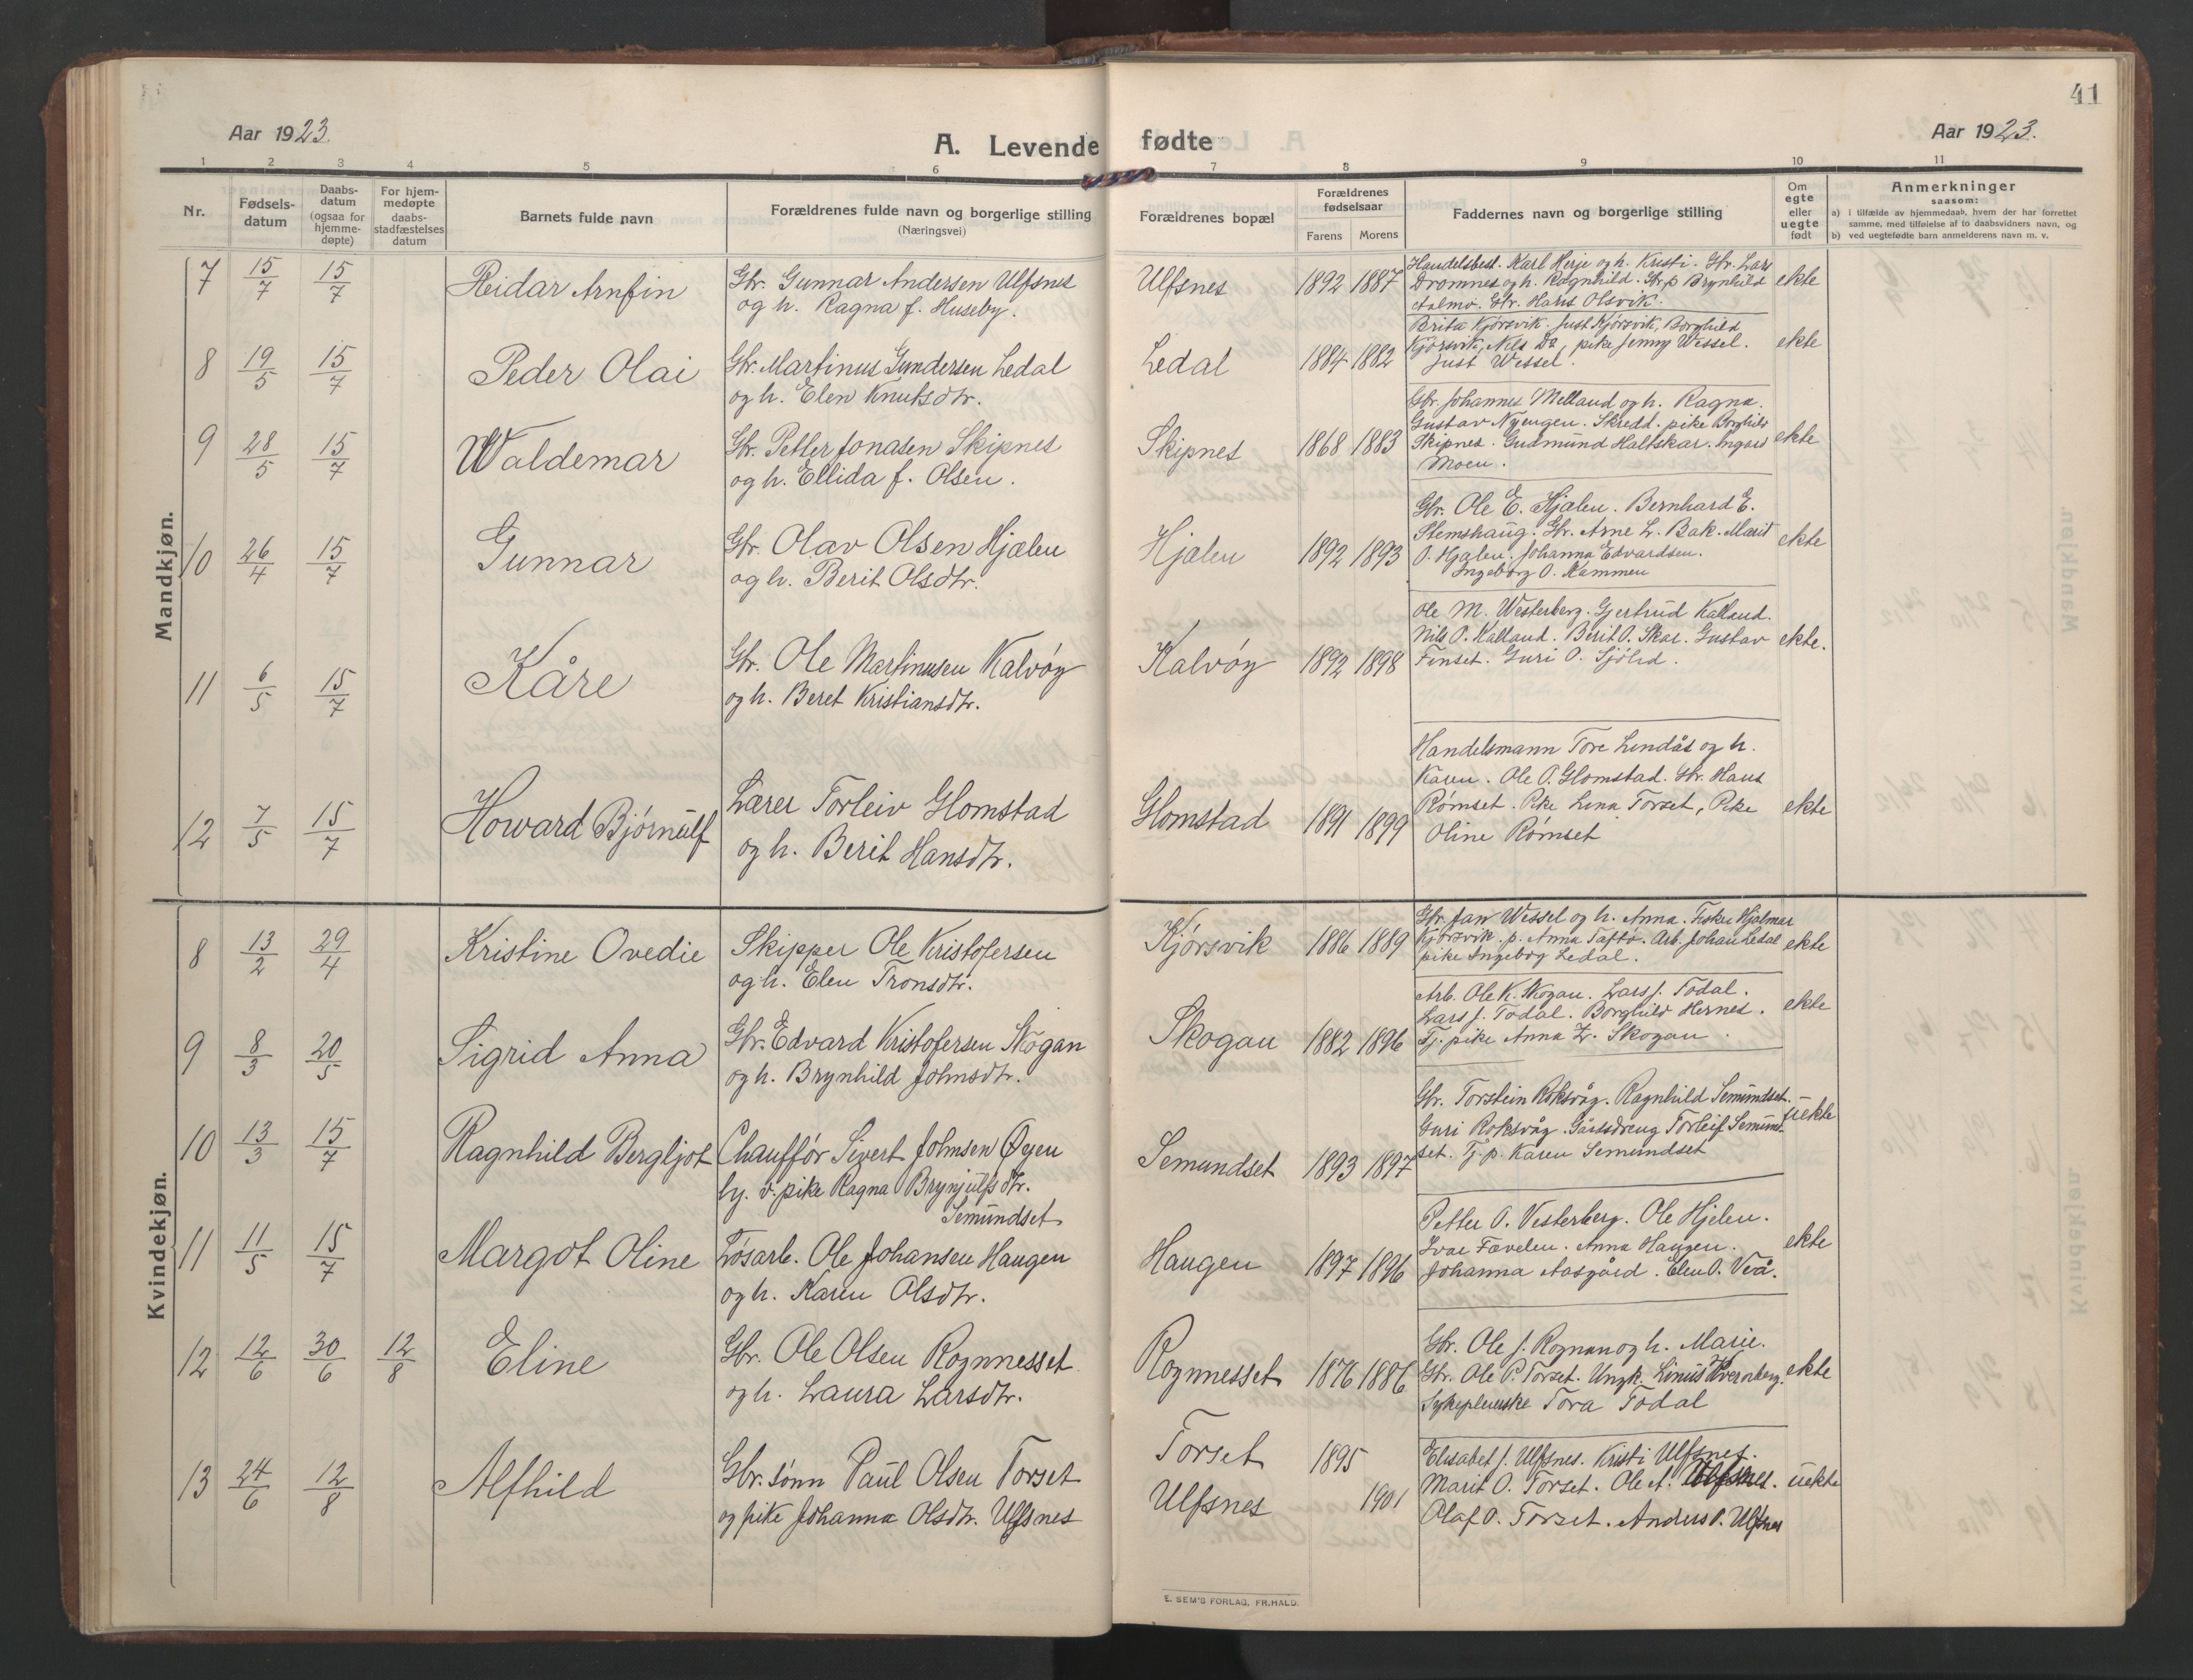 41
Aar 1923.
A. Levende fødte
Aar 1923.
1 2 3 4 5 6 7 8 9 10 11
Nr.
Fødsels-
datum
Daabs-
datum
(ogsaa for
hjemme-
døpte)
For hjem-
medøpte
daabs-
stadfæstelses
datum
Barnets fulde navn
Forældrenes fulde navn og borgerlige stilling
(Næringsvei)
Forældrenes bopæl
Forældrenes
fødselsaar
Farens Morens
Faddernes navn og borgerlige stilling
Om
egte
eller
uegte
født
Anmerkninger
saasom:
a) i tilfælde av hjemmedaab, hvem der har forrettet
samme, med tilføielse af to daabsvidners navn, og
b) ved uegtefødte barn anmelderens navn m. v.
Mandkjøn.
7 15/7 15/7 Reidar Arnfin
Gbr. Gunnar Andersen Ulfsnes
og h. Ragna f. Huseby.
Ulfsnes 1892 1887
Handelsbest. Karl Herje og h. Kristi. Gbr. Lars
Dromnes og h. Ragnhild. Gbr p Brynhild
Aalmo. Gbr. Hans Olsvik.
ekte
8 19/5 15/7 Peder Olai
Gbr. Martinus Gundersen Ledal
og h. Elen Knutsdtr.
Ledal 1884 1882
Brita Kjørsvik. Just Kjørsvik, Borghild
Kjørsvik, Nils Do, pike Jenny Wessel.
Just Wessel.
ekte
9 28/5 15/7 Waldemar
Gbr. Petter Jonasen Skipnes
og h. Ellida f. Olsen.
Skipnes 1868 1883
Gbr. Johannes Melland og h. Ragna.
Gustav Nyengen. Skredd. pike Borghild
Skipnes. Gudmund Haltskar. Ingard
Moen.
ekte
10 26/4 15/7 Gunnar
Gbr. Olav Olsen Hjælen
og h. Berit Olsdtr.
Hjælen 1892 1893
Gbr. Ole E. Hjælen. Bernhard E.
Stemshaug. Gbr. Arne L. Bak. Marit
O. Hjælen. Johanna Edvardsen.
Ingeborg O. Kammen
ekte
11 6/5 15/7 Kåre
Gbr. Ole Martinusen Kalvøy
og h. Beret Kristiansdtr.
Kalvøy 1892 1898
Ole M. Westerberg. Gjertrud Kalland.
Nils P. Kalland. Berit O. Skar. Gustav
Finset. Guri O. Sjölid.
ekte.
12 7/5 15/7 Howard Bjørnulf
Lærer Torleiv Glomstad
og h. Berit Hansdtr.
Glomstad 1891 1899
Handelsmann Tore Lendås og h.
Karen. Ole O. Glomstad. Gbr. Hans
Rømset. Pike Lina Torset, Pike
Oline Rømset
ekte
Kvindekjøn.
8 13/2 29/4 Kristine Ovedie
Skipper Ole Kristofersen
og h. Elen Tronsdtr.
Kjørsvik 1886 1889
Gbr. Jan Wessel og h. Anna. Fisker Hjalmar
Kjørsvik. p. Anna Taftø. Arb. Johan Ledal
pike Ingeborg Ledal.
ekte
9 8/3 20/5 Sigrid Anna
Gbr. Edvard Kristofersen Skogan
og h. Brynhild Johnsdtr.
Skogan 1882 1896
Arb. Ole K. Skogan. Lars J. Todal.
Lars J. Todal. Borghild Hernes.
Tj. pike Anna Z. Skogan.
ekte
10 13/3 15/7 Ragnhild Bergljot
Chauffør Sivert Johnsen Øyen
by. v. pike Ragna Brynjulfsdtr.
Semundset
Semundset 1893 1897
Gbr. Torstein Roksvåg. Ragnhild Semundset.
Guri Roksvåg. Gårdsdreng Torleif Semund-
set. Tj. p. Karen Semundset
uekte
11 11/5 15/7 Margot Oline
Løsarb. Ole Johansen Haugen
og h. Karen Olsdtr.
Haugen 1897 1896
Petter O. Vesterberg. Ole Hjelen.
Ivar Fævelen. Anna Haugen.
Johanna Aasgård. Elen O. Veå.
ekte
12 12/6 30/6 12/8 Eline
Gbr. Ole Olsen Rognnesset
og h. Laura Larsdtr.
Rognnesset 1876 1886
Gbr. Ole J. Rognan og h. Marie.
Gbr. Ole P. Torset. Ungk. Linus Kvernberg.
Sykepleierske Tora Todal
ekte
13 24/6 12/8 Alfhild
Gbr. sønn Paul Olsen Torset
og pike Johanna Olsdtr. Ulfsnes
Torset 1895
Ulfsnes 1901
Elisabet J. Ulfsnes. Kristi Ulfsnes.
Marit O. Torset. Ole A. Ulfsnes.
Olaf O. Torset. Anders O. Ulfsnes
uekte
E. SEM'S FORLAG, FR.HALD.